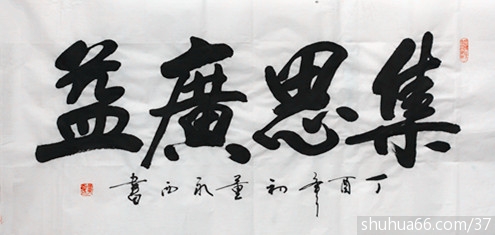 集思廣益
丁酉年初董永西書
shuhua66.com/37